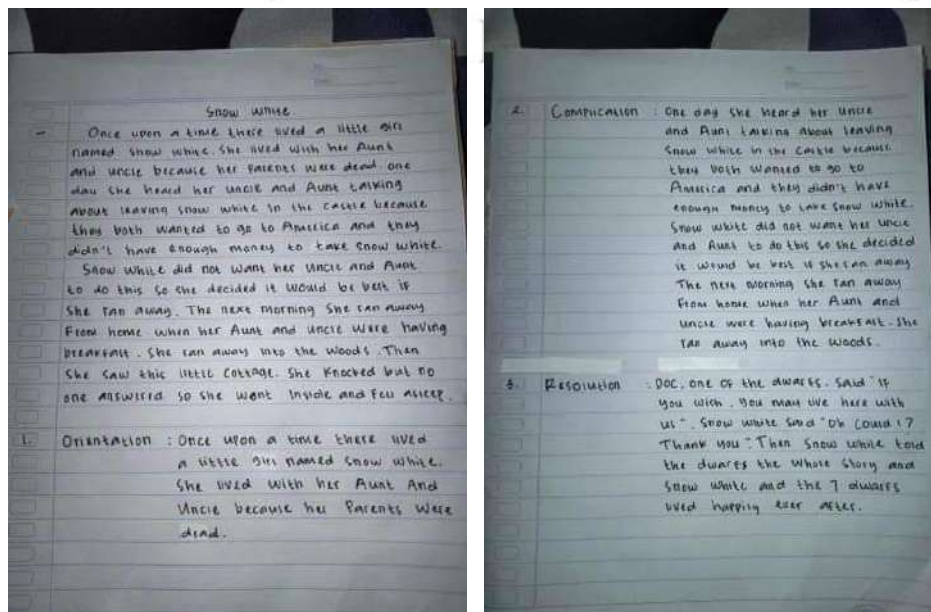 Snow White.
Once upon a time there lived a little girl
named snow white. She lived with her Aunt
and uncle because her parents were dead one
day she heard her uncle and Aunt talking
about leaving snow white in the castle because
they both wanted to go to America and they
didn't have enough money to take snow white.
Snow White did not want her Uncle and Aunt
to do this so she decided it would be best if
She ran away. The next morning She ran away
From home when her Aunt and uncle Were having
breakfast. She ran away into the woods. Then
She saw this little cottage. She Knocked but no
one answered so she went Inside and Fell asleep.
1. Orientation : Once upon a time there lived
a little girl named snow white.
She lived with her Aunt And
Uncle because her Parents Were
dead.
2. Complication : One day She heard her uncle
and Aunt talking about leaving
Snow white in the castle because
they both wanted to go to
America and they didn't have
enough money to take snow white.
Snow white did not want her uncle
and Aunt to do this so she decided
it would be best if she ran away
The next morning She ran away
From home when her Aunt and
uncle were having breakfast. She
ran away into the woods.
3. Resolution : Doc, one of the dwarfs. Said "if
you wish. You may live here with
us". Snow white Said "Oh Could I?
Thank you". Then Snow white told
the dwarfs the whole Story and
Snow white and the 7 dwarfs
lived happily ever after.